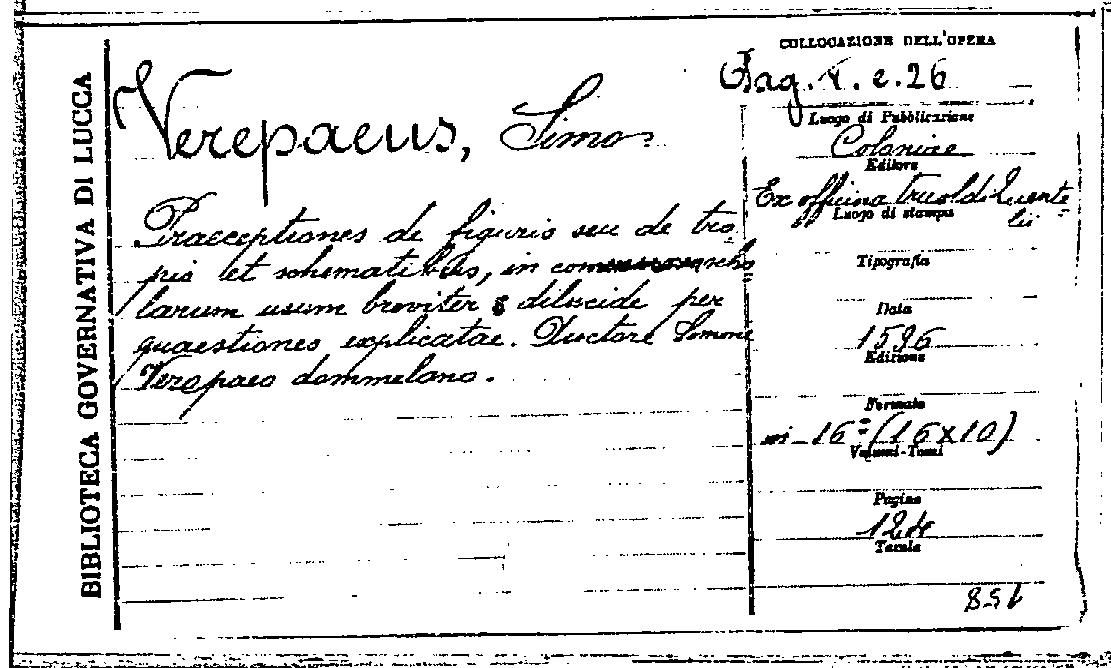 BIBLIOTECA GOVERNATIVA DI LUCCA
Verepaeus, Simon
Praeceptiones de figuris seu de tro
pis et schematibus, in com scho
larum usum breviter & dilucide per
quaestiones explicatae. Auctore Simone
Verepaeo dommelano.
COLLOCAZIONE DELL'OPERA
26
Luogo di Pubblicazione
Coloniae
Editore
Ex officina
Luogo di stampa
Tipografia
Data
1596
Edizione
Formato
in-16° (16x10)
Volumi-Tomi
Pagine
124
Tavole